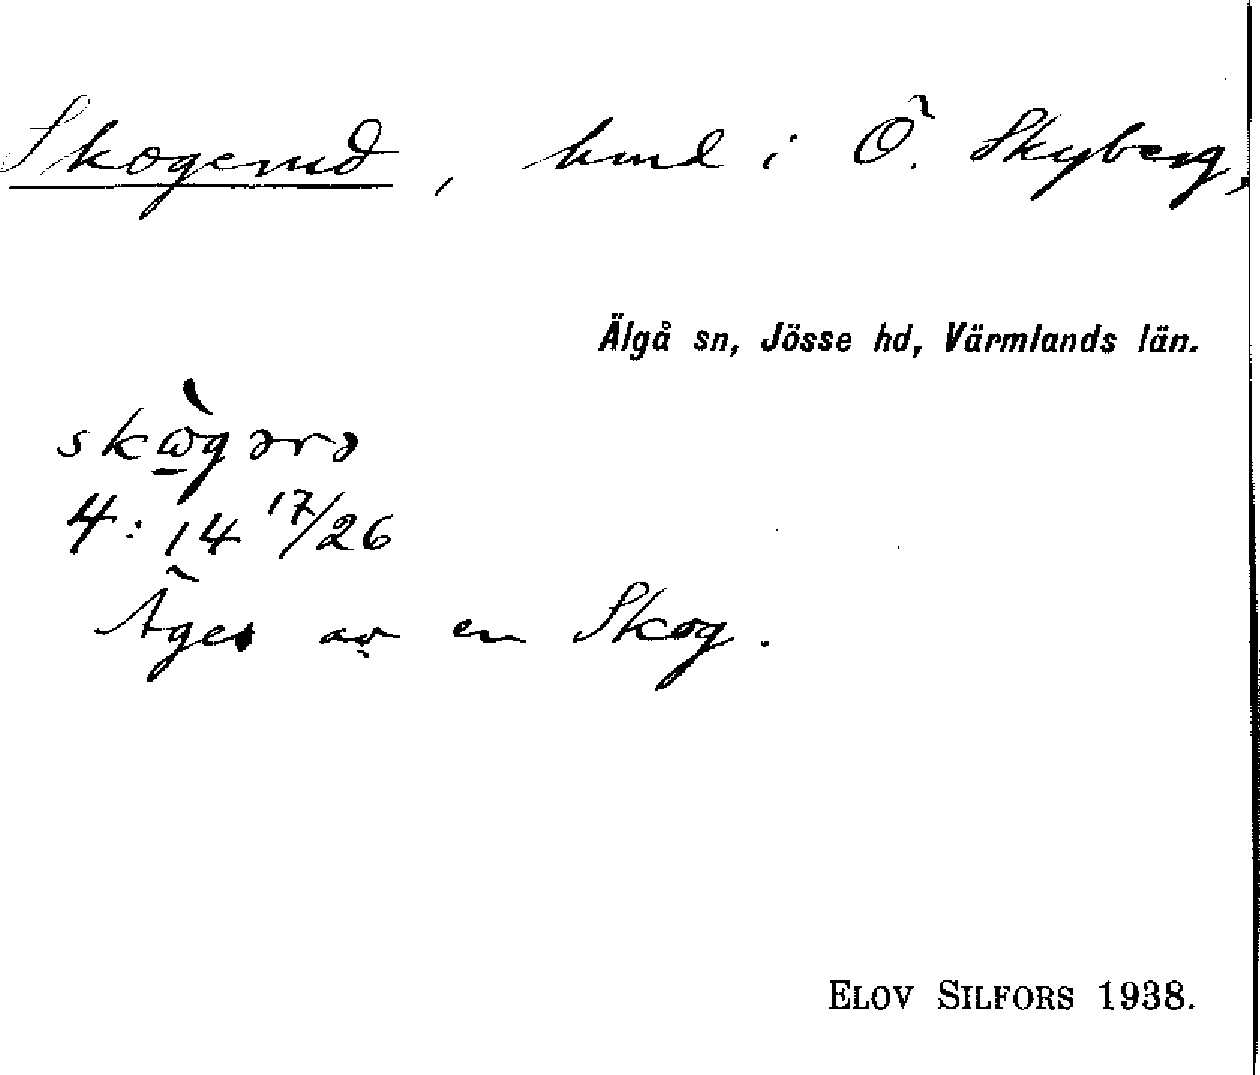 Skogerud, hmd i Ö. Skyberg,
Älgå sn, Jösse hd, Värmlands län.
skò̲gərə
4:14 17/26
Äges av en Skog.
ELOV SILFORS 1938.